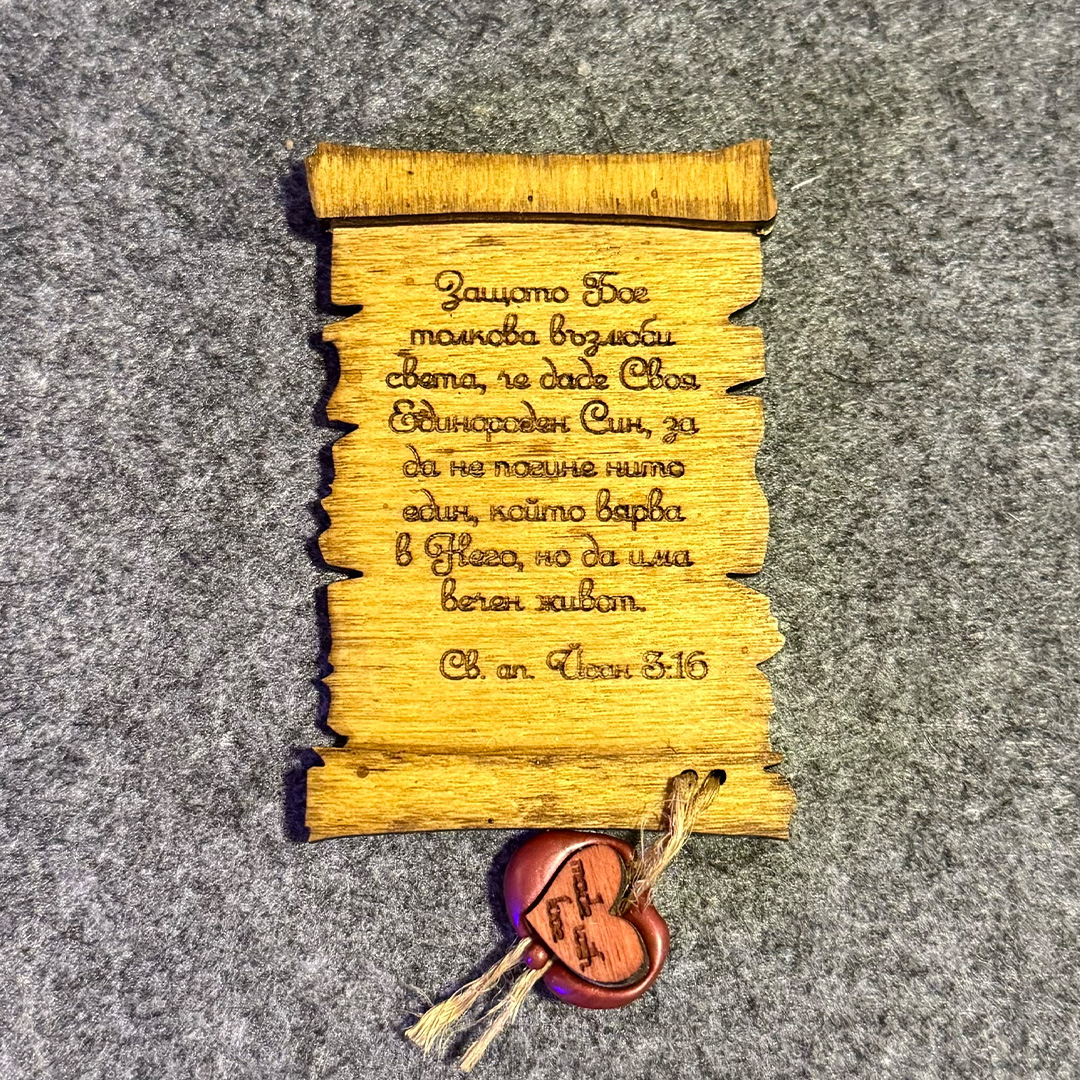 Защото Бог
толкова възлюби
света, че даде Своя
Единороден Син, за
да не погине нито
един, който вярва
в Него, но да има
вечен живот.
Св. ап. Йоан 3:16
made
with
love